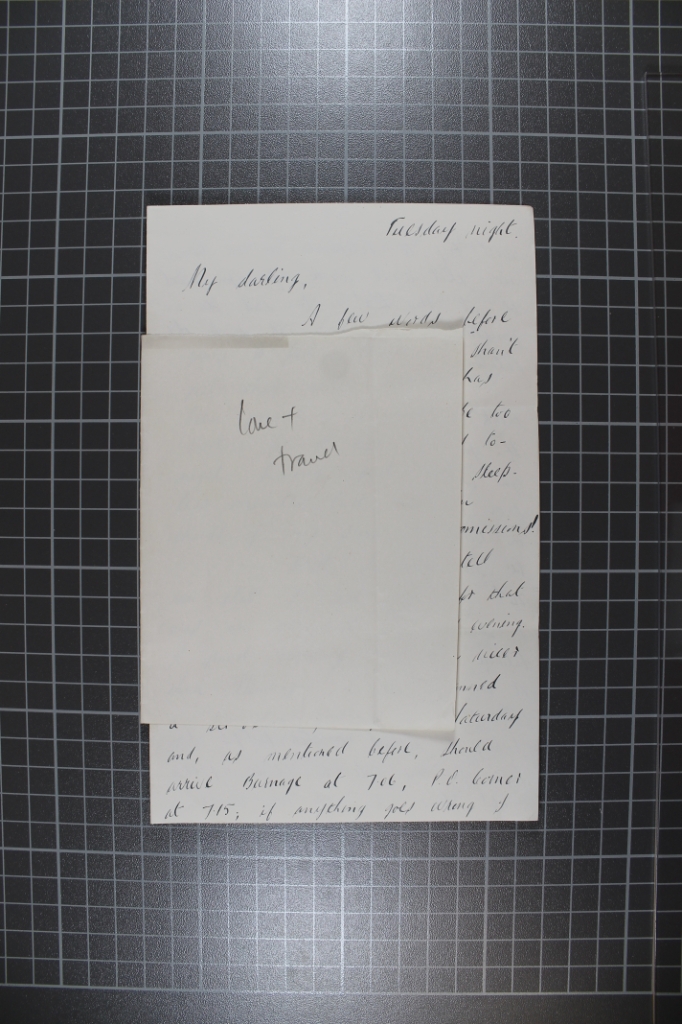 Tuesday night.
My darling,
A few words before
shan't
has
too
to-
sleep.
omissions!
tell
for that
evening.
Saturday
and, as mentioned before, should
arrive Burnage at 7.06, P.O. Corner
at 7.15; if anything goes wrong I
Love +
travel